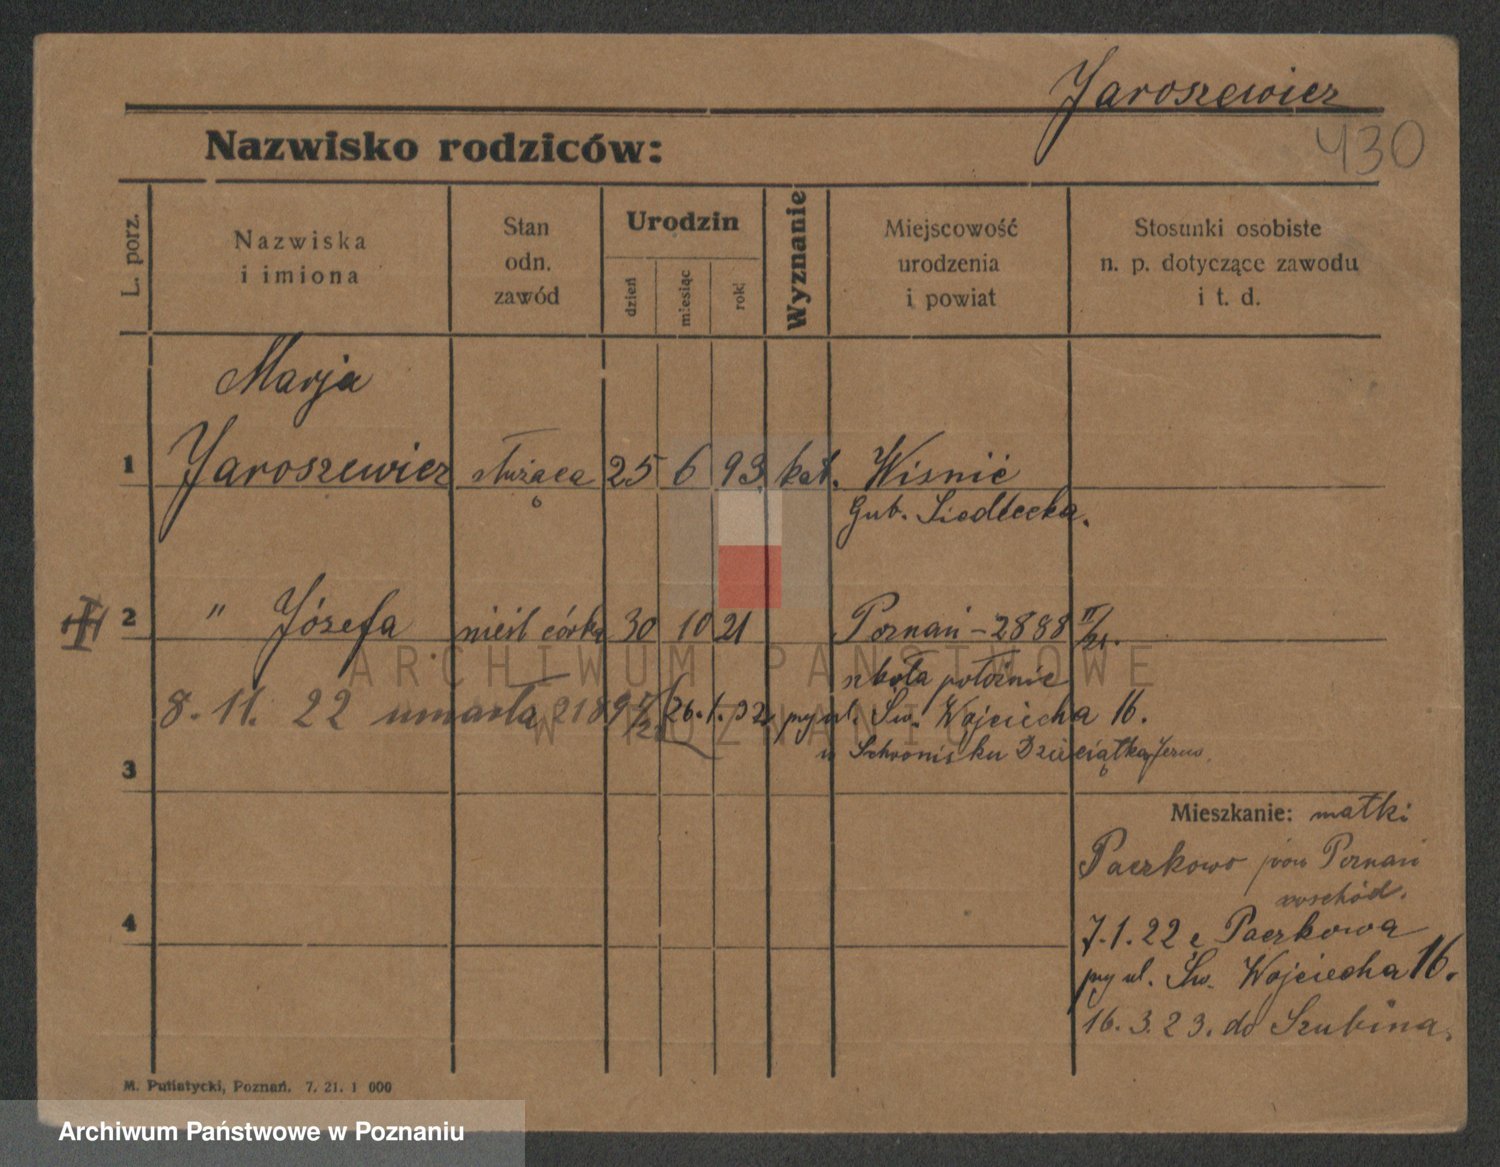 Jaroszewicz
Nazwisko rodziców:
430
L. porz.
Nazwiska
i imiona
Stan
odn.
zawód
Urodzin
dzień
miesiąc
rok
Wyznanie
Miejscowość
urodzenia
i powiat
Stosunki osobiste
n. p. dotyczące zawodu
i t. d.
Marja
1 Jaroszewicz służąca 25 6 93 kat. Wisnić
Gub. Siedlecka.
2 " Józefa nieśl córka 30 10 21 Poznań - 2888 II/21.
szkoła położnic
8. 11. 22 umarła 26.1.22 przy ul. Św. Wojciecha 16.
w Schronisku Dzieciątka Jezus.
3
Mieszkanie: matki
Paczkowo pow Poznań
wschód.
4
7.1.22 z Paczkowa
przy ul. Św. Wojciecha 16.
16.3.23. do Szubina.
M. Putiatycki, Poznań. 7. 21. 1 000
ARCHIWUM PAŃSTWOWE
W POZNANIU
Archiwum Państwowe w Poznaniu